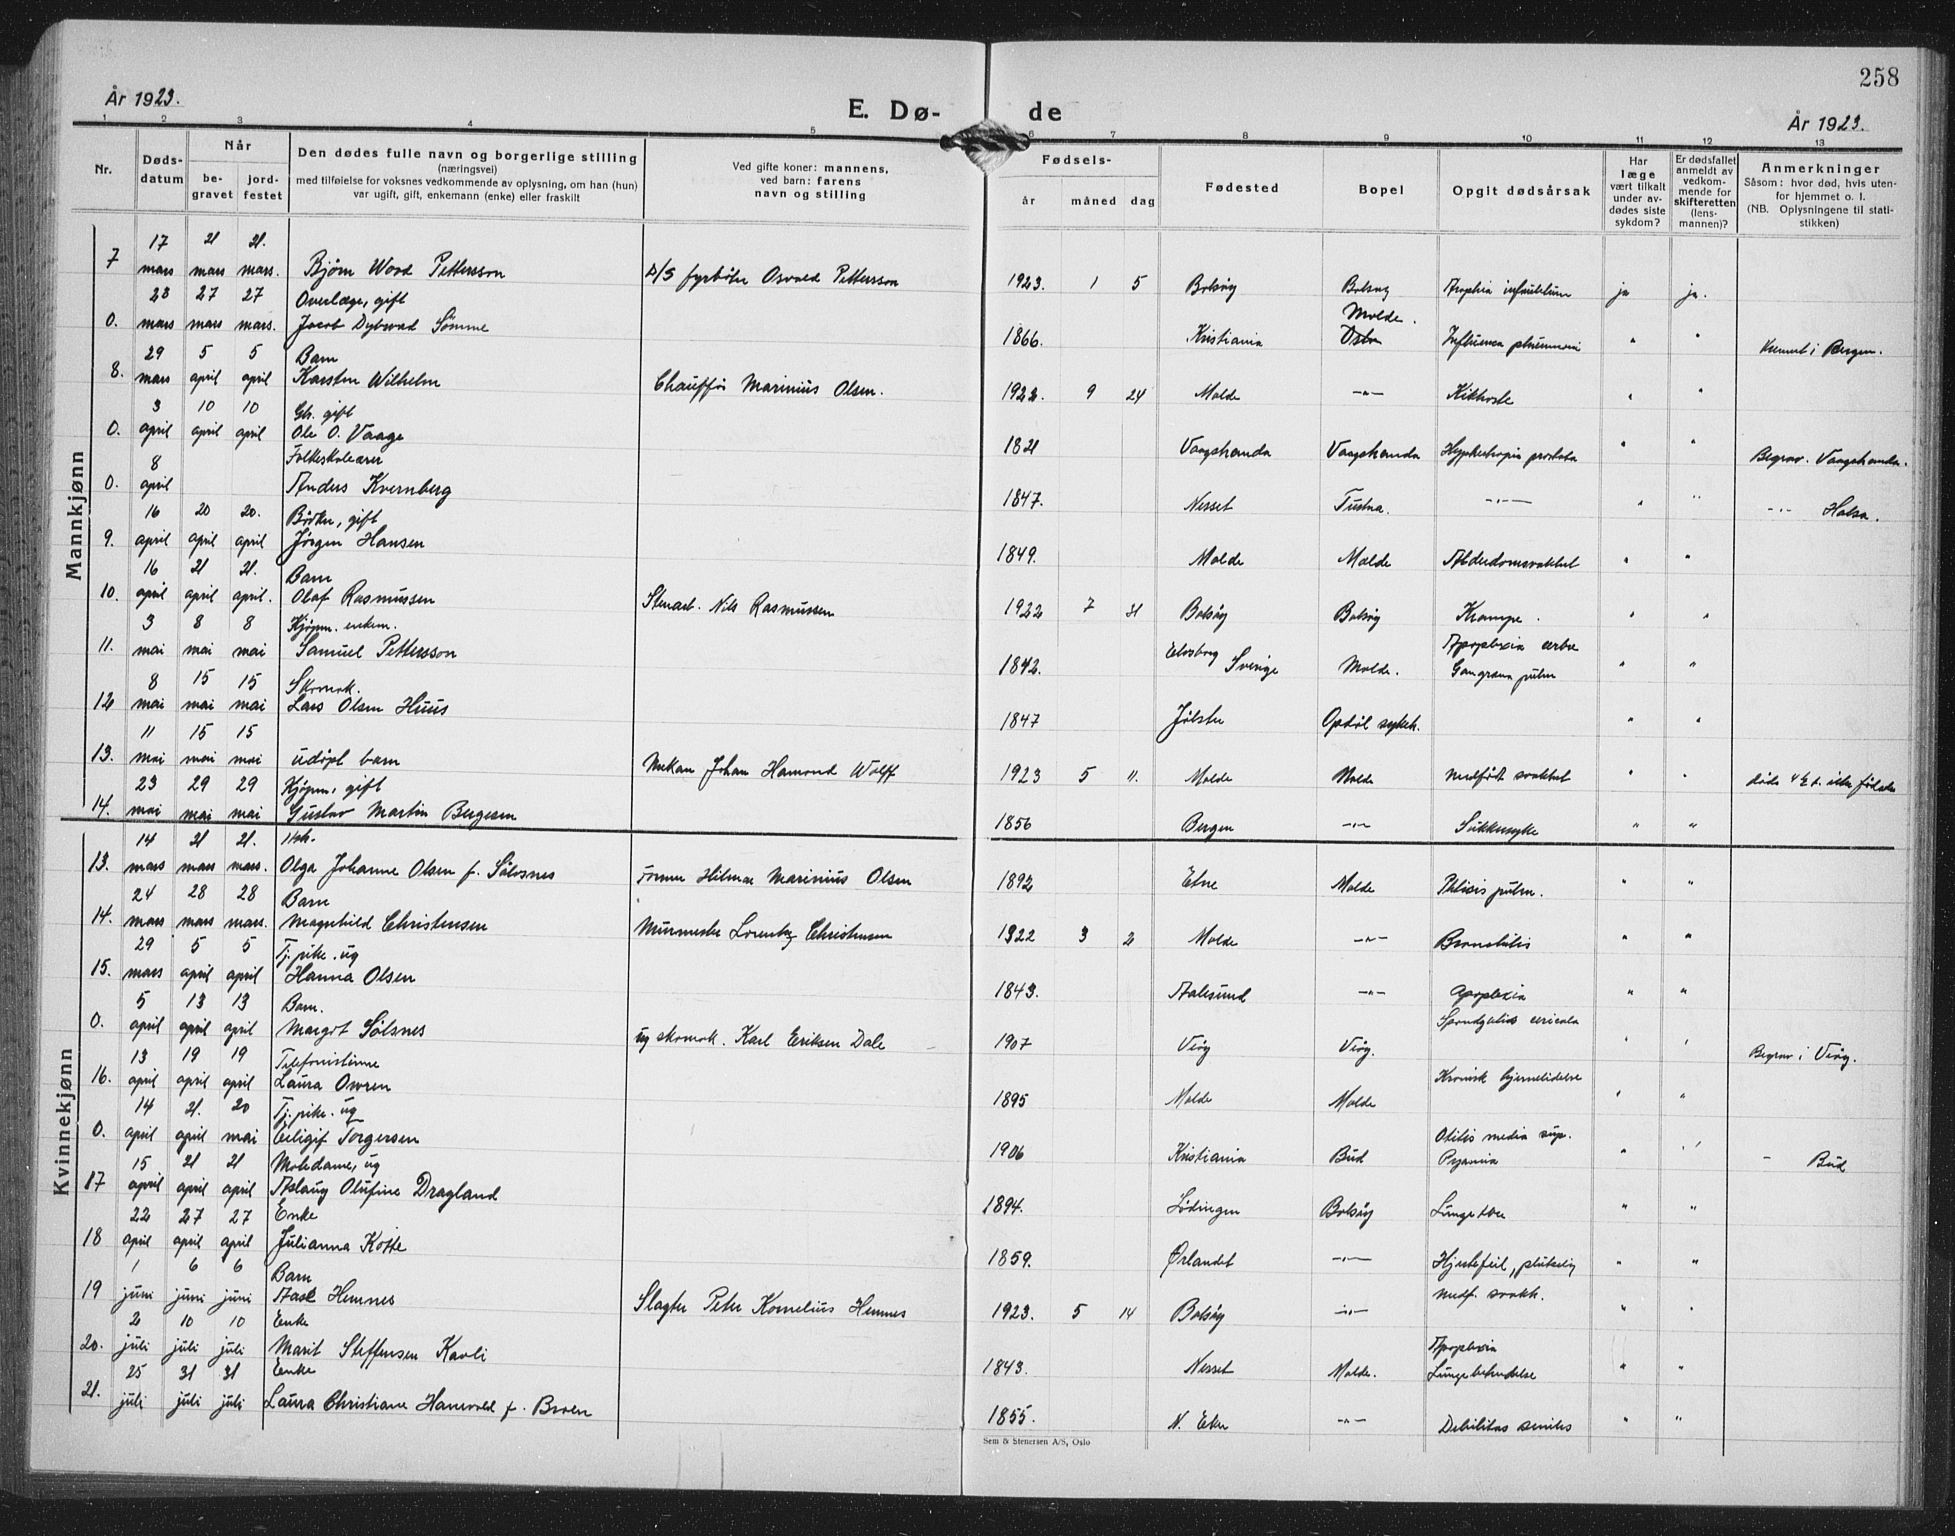 258
År 1923.
E. Dø-
de
År 1923.
1 2 3 4 5 6 7 8 9 10 11 12 13
Nr.
Døds-
datum
Når
be-
gravet
jord-
festet
Den dødes fulle navn og borgerlige stilling
(næringsvei)
med tilføielse for voksnes vedkommende av oplysning, om han (hun)
var ugift, gift, enkemann (enke) eller fraskilt
Ved gifte koner: mannens,
ved barn: farens
navn og stilling
Fødsels-
år måned dag
Fødested
Bopel
Opgit dødsårsak
Har
læge
vært tilkalt
under av-
dødes siste
sykdom?
Er dødsfallet
anmeldt av
vedkom-
mende for
skifteretten
(lens-
mannen)?
Anmerkninger
Såsom: hvor død, hvis uten-
for hjemmet o. l.
(NB. Oplysningene til stati-
stikken)
Mannkjønn
17 21 21.
7 mars mars mars. Bjørn Wood Pettersson D/S fyrbøter Osvald Pettersson 1923. 1 5 Bolsøy Bolsøy ja ja.
23 27 27 Overlæge, gift Molde.
0. mars mars mars. Jacob Dybwad Sömme 1866. Kristiania " " Bergen.
29 5 5 Barn
8. mars april april Karsten Wilhelm Chauffør Marinius Olsen. 1922. 9 24 Molde -"- Kikhoste " "
3 10 10 Gb. gift
0. april april april Ole O. Vaage 1821 Vaagstranda Vaagstranda prostata " " Begrav. Vaagstranda.
8 Folkeskolelærer
0. april Anders Kvernberg 1847. Nesset Tustna. -"- " " -"- Halsa.
16 20 20. gift
9. april april april Jørgen Hansen 1849. Molde Molde Alderdomssvakhet " "
16 21 21. Barn
10. april april april. Olaf Rasmussen Stenarb. Nils Rasmussen 1922 7 31 Bolsøy Bolsøy Krampe. " "
3 8 8 Kjøpm. enkem. Apoplexia
11. mai mai mai Samuel Pettersson 1842. Sverige Molde. Gangræna pulm " "
8 15 15 Skomak.
12 mai mai mai Lars Olsen Huus 1847 Jølster Opdøl sykeh. " "
11 15 15
13. mai mai mai udøpt barn Johan Hamond Wolff 1923 5 11. Molde Molde medfødt svakhet " "
23 29 29 Kjøpm. gift
14. mai mai mai Gustav Martin Bergesen 1856 Bergen -"- Sukkersyke " "
Kvinnekjønn
14 21 21.
13. mars mars mars. Olga Johanne Olsen f. Sølsnes Hilmar Marinius Olsen 1892 Etne Molde Phtisis pulm. " "
24 28 28 Barn
14. mars mars mars. Magnhild Christensen Murmester Christensen 1922 3 2 Molde -"- " "
29 5 5 Tj. pike. ug
15. mars april april Hanna Olsen 1843. Aalesund -"- Apoplexia " "
5 13 13 Barn.
0. april april april Margot Sølsnes ug skomak. Karl Eriksen Dale 1907 Veøy Veøy. " " Begrav i Veøy.
13 19 19 Telefonistinne Kronisk hjernelidelse
16. april april april Laura Owren 1895 Molde Molde " "
14 21. 20 Tj. pike. ug Otitis media sup.
0. april april mai Torgersen 1906 Kristiania Bud Pyæmia " " - Bud
15 21 21 Motedame, ug
17 april april april Aslaug Olufine Dragland 1894. Lødingen Bolsøy " "
22 27 27 Enke
18 april april april Julianna Kotte 1859. Ørlandet -"- Hjertefeil, plutselig " "
1 6 6 Barn medf. svakh.
19 juni juni juni Aase Hemnes Slagter Peter Kornelius Hemnes 1923. 5 14 Bolsøy -"- " "
2 10 10 Enke Apoplexia
20. juli juli juli Marit Steffensen Kavli 1843. Nesset Molde. Lungebetendelse " "
25 31 31 Enke
21. juli juli juli Laura Christiane Hanevold f. Broen 1855. N. Eker -"- Debilitas senilis " "
Sem & Stenersen A/S, Oslo